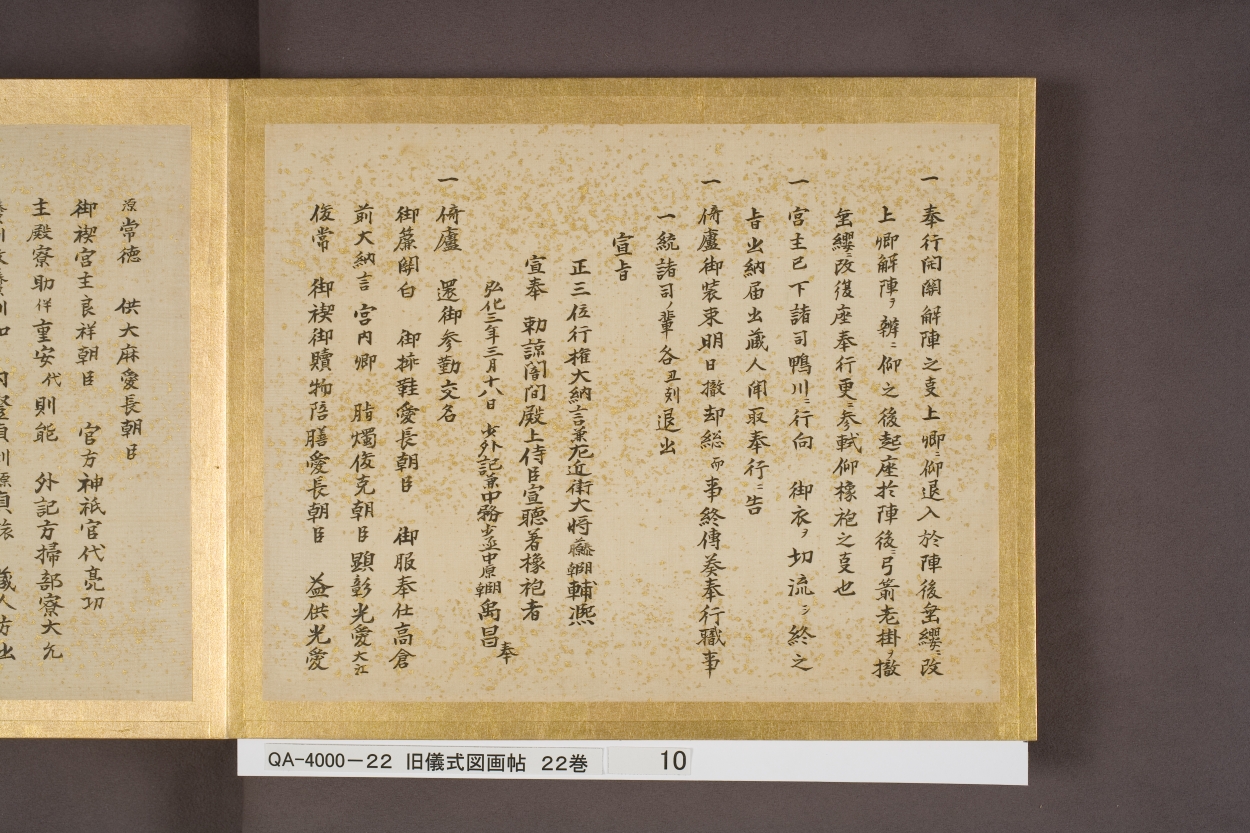 一 奉行開關解陣之㕝上卿ニ仰退入於陣後垂纓ニ改
上卿解陣ヲ辨ニ仰之後起座於陣後ニ弓箭老掛ヲ撤
垂纓ニ改復座奉行更ニ参軾仰橡袍之㕝也
一 宮主已下諸司鴨川ニ行向 御衣ヲ切流シ終之
旨出納届出蔵人聞取奉行ニ告
一 倚廬御装束明日撤却総而事終傳奏奉行職事
一統諸司ノ輩各丑刻退出
宣旨
正三位行権大納言兼左近衛大将藤原朝臣輔熈
宣奉 勅諒闇間殿上侍臣宣聴著橡袍者
弘化三年三月十八日 少外記兼中務少丞中原朝臣禹昌奉
一 倚廬 還御参勤交名
御簾關白 御挿鞋愛長朝臣 御服奉仕高倉
前大納言 宮内卿 脂燭俊克朝臣 顕彰光愛大江
俊常 御禊御贖物陪膳愛長朝臣 益供光愛
源常徳 供大麻愛長朝臣
御禊宮主良祥朝臣 官方神祇官代亮功
主殿寮助伴重安代則能 外記方掃部寮大允
QA-4000-22 旧儀式図画帖 22巻 10